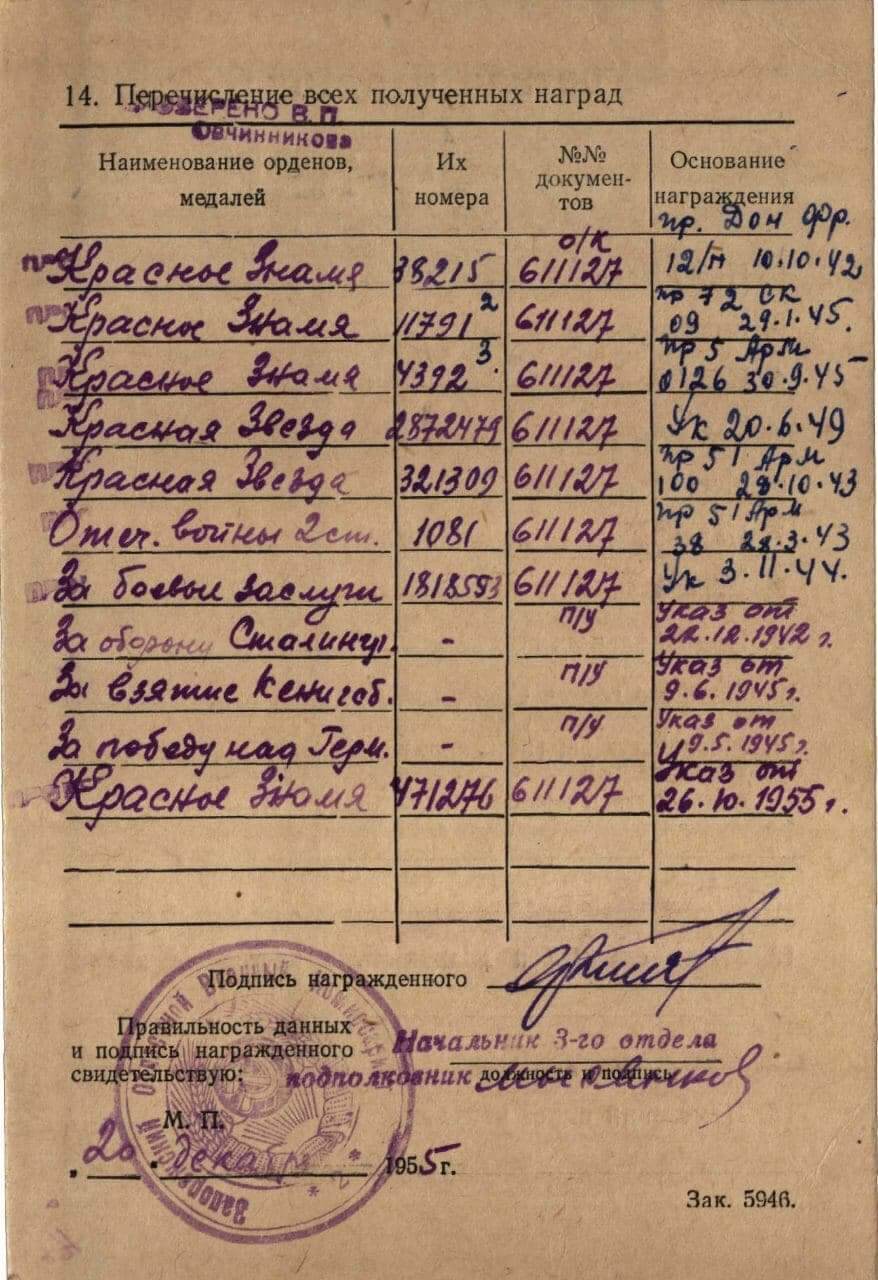 14. Перечисление всех полученных наград
ОВЕРЕНО В. П.
Овчинникова
Наименование орденов, медалей Их номера №№ документов Основание награждения
Красное Знамя 38215 о/к 611127 пр. Дон Фр. 12/н 10.10.42
Красное Знамя 11791 2 611127 пр 72 СК 09 29.1.45.
Красное Знамя 4392 3. 611127 пр 5 Арм 0126 30.9.45
Красная Звезда 2872479 611127 Ук 20.6.49
Красная Звезда 321309 611127 пр 51 Арм 100 28.10.43
Отеч. войны 2 ст. 1081 611127 пр 51 Арм 38 28.3.43
За боевые заслуги 1818593 611127 Ук 3.11.44.
За оборону Сталингр. - п/у Указ от 22.12.1942 г.
За взятие Кенигсб. - п/у Указ от 9.6.1945 г.
За победу над Герм. - п/у Указ от 9.5.1945 г.
Красное Знамя 471276 611127 Указ от 26.10.1955 г.
Подпись награжденного
Правильность данных
и подпись награжденного
свидетельствую:
Начальник 3-го отдела
подполковник
должность и подпись
М. П.
„20" декабр 1955 г.
Запорожский Областной Военный Комиссариат
Зак. 5946.